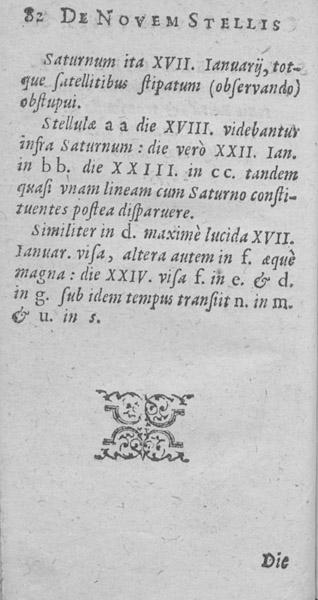 82 DE NOVEM STELLIS
Saturnum ita XVII. Ianuarij, tot-
que ſatellitibus ſtipatum (obſervando)
obſtupui.
Stellulæ a a die XVIII. videbantur
infra Saturnum: die verò XXII. Ian.
in bb. die XXIII. in cc. tandem
quaſi vnam lineam cum Saturno conſti-
tuentes poſtea diſparuere.
Similiter in d. maximè lucida XVII.
Ianuar. viſa, altera autem in f. æquè
magna: die XXIV. viſa f. in e. & d.
in g. ſub idem tempus tranſiit n. in m.
& u. in s.
Die